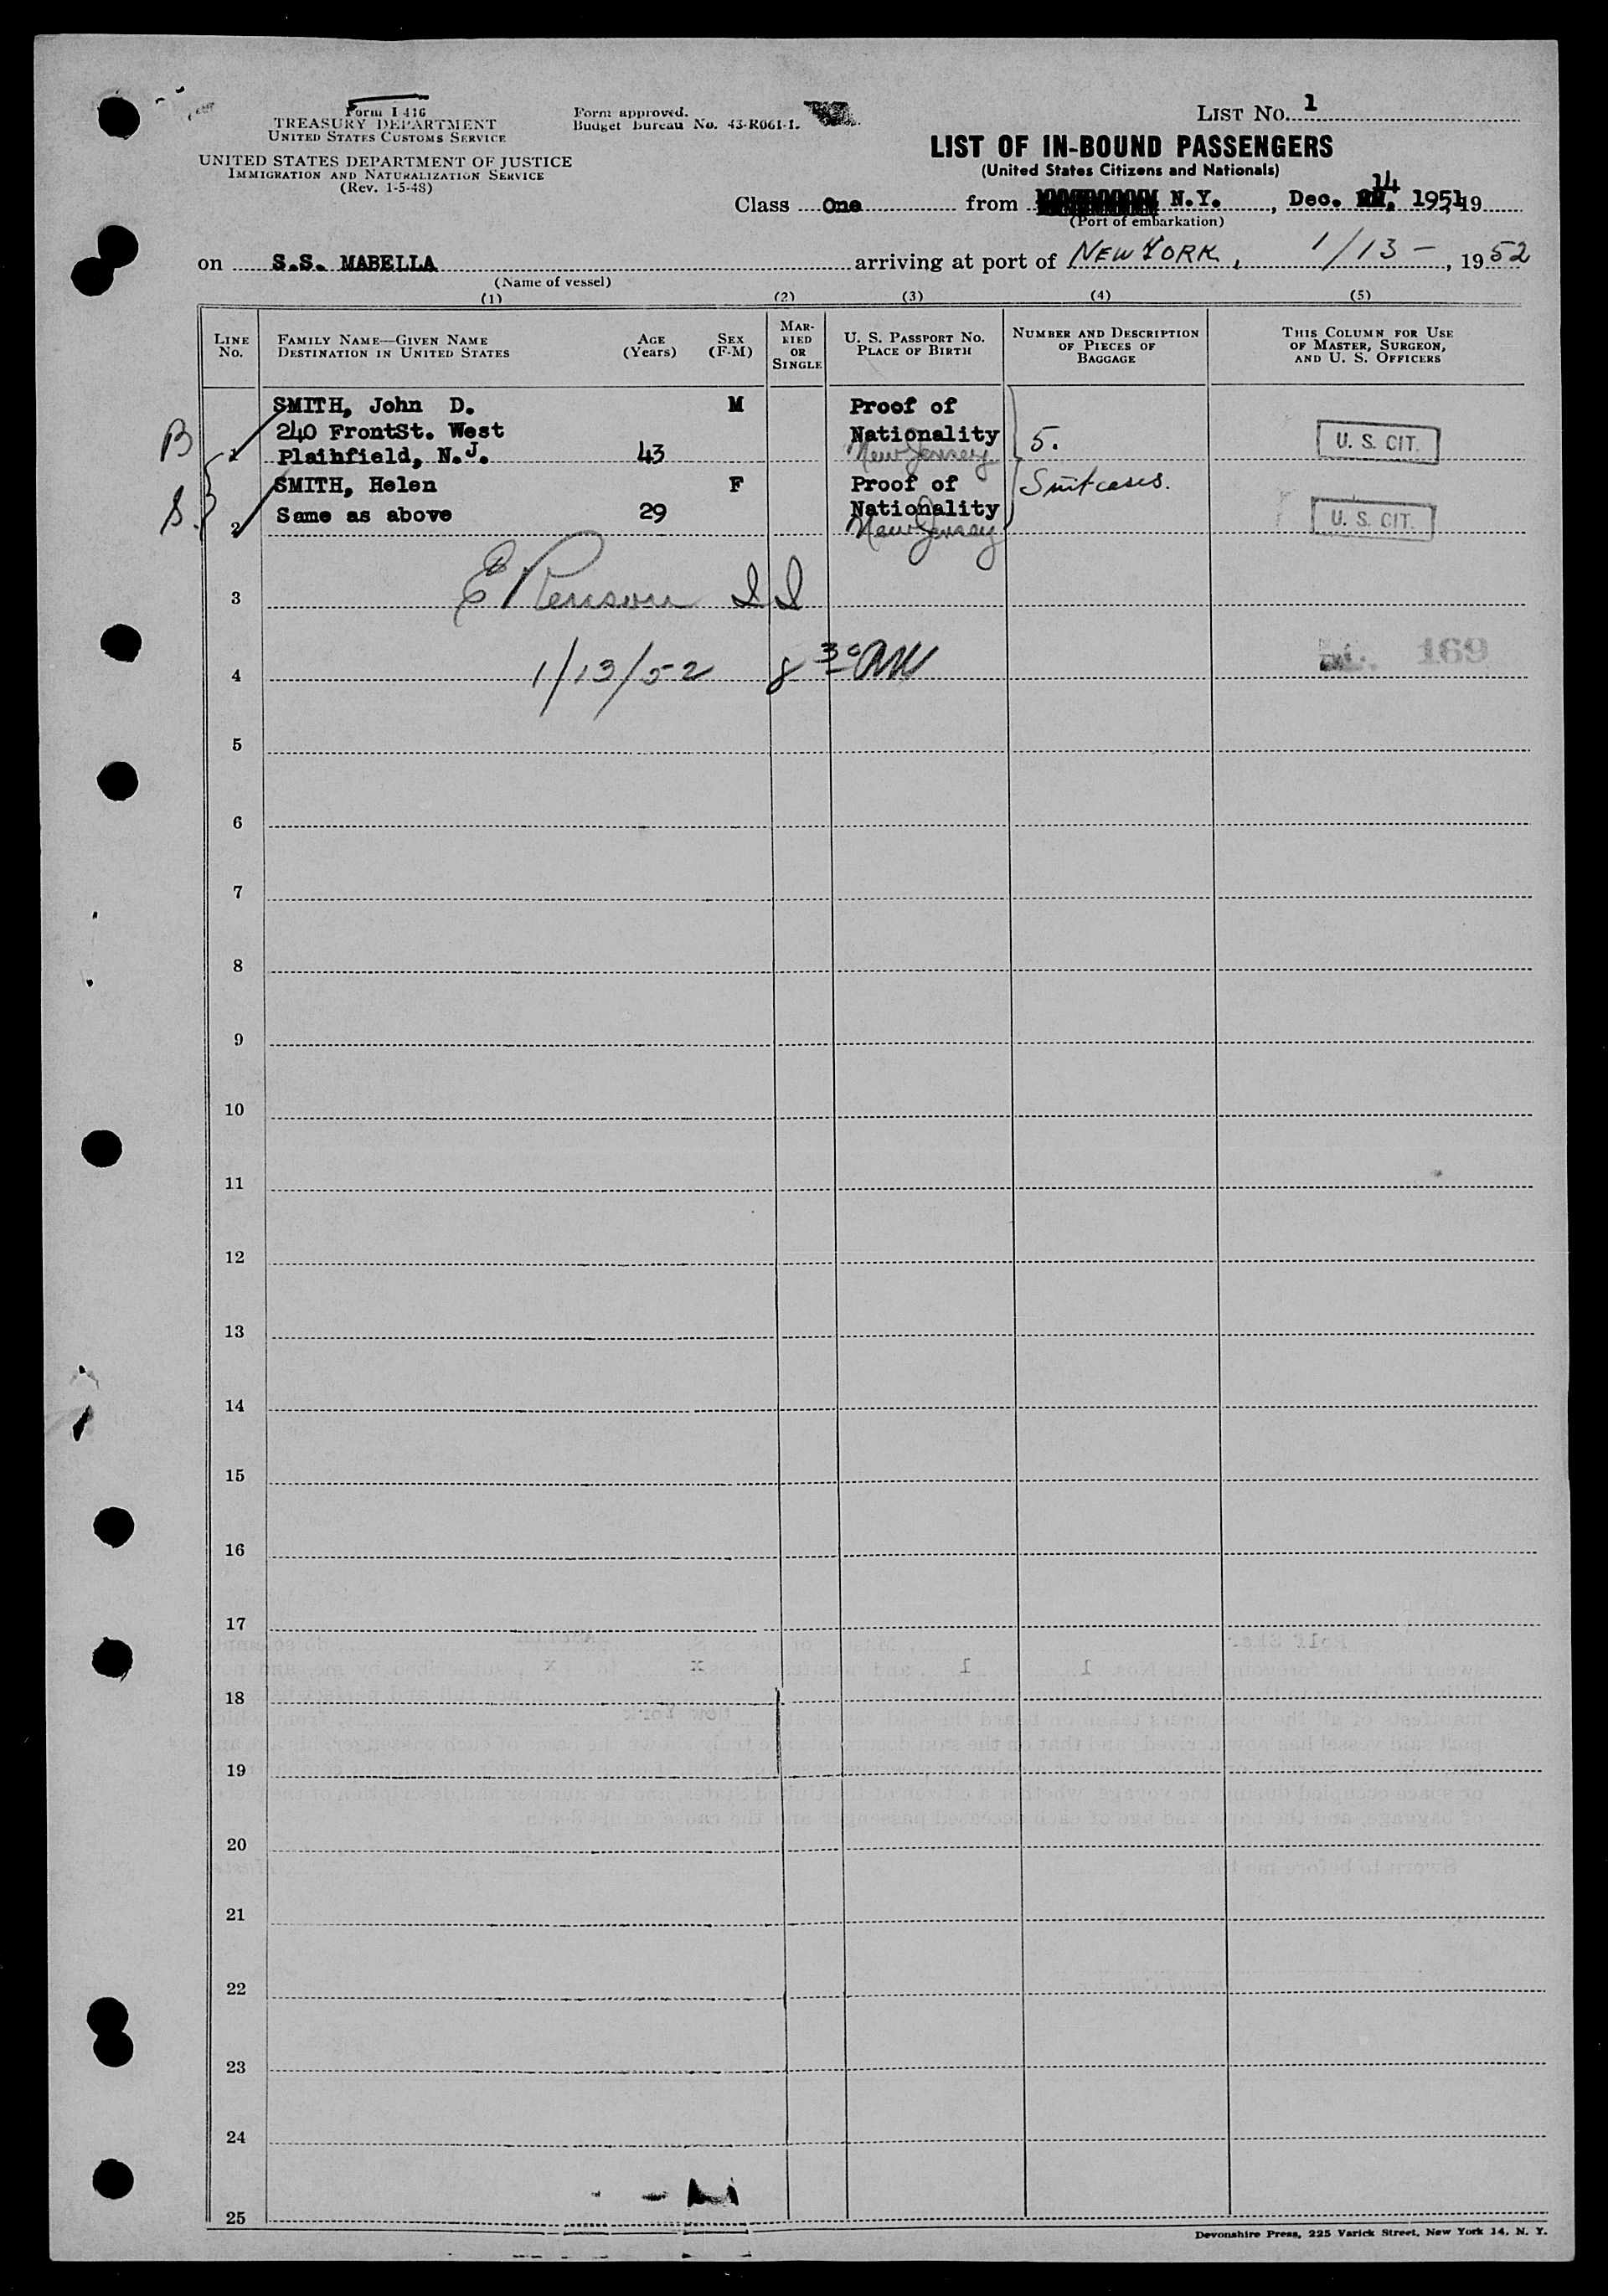 Form I-416
TREASURY DEPARTMENT
UNITED STATES CUSTOMS SERVICE
UNITED STATES DEPARTMENT OF JUSTICE
IMMIGRATION AND NATURALIZATION SERVICE
(Rev. 1-5-48)
Form approved.
Budget Bureau No. 43-R061-1.
LIST NO. 1
LIST OF IN-BOUND PASSENGERS
(United States Citizens and Nationals)
Class One from N.Y., Dec. 14, 1951, 19
(Port of embarkation)
on S.S. MABELLA arriving at port of NEW YORK, 1/13-, 1952
(Name of vessel)
(1) (2) (3) (4) (5)
LINE No.
FAMILY NAME—GIVEN NAME
DESTINATION IN UNITED STATES
AGE (Years)
SEX (F-M)
MARRIED OR SINGLE
U. S. PASSPORT NO.
PLACE OF BIRTH
NUMBER AND DESCRIPTION
OF PIECES OF
BAGGAGE
THIS COLUMN FOR USE
OF MASTER, SURGEON,
AND U. S. OFFICERS
SMITH, John D. M Proof of
B 240 FrontSt. West Nationality 5. U. S. CIT.
1 Plaihfield, N.J. 43 New Jersey
SMITH, Helen F Proof of Suitcases.
S. 2 Same as above 29 Nationality U. S. CIT.
New Jersey
3
4 1/13/52 8 30 AM 169
5
6
7
8
9
10
11
12
13
14
15
16
17
18
19
20
21
22
23
24
25
Devonshire Press, 225 Varick Street, New York 14, N. Y.